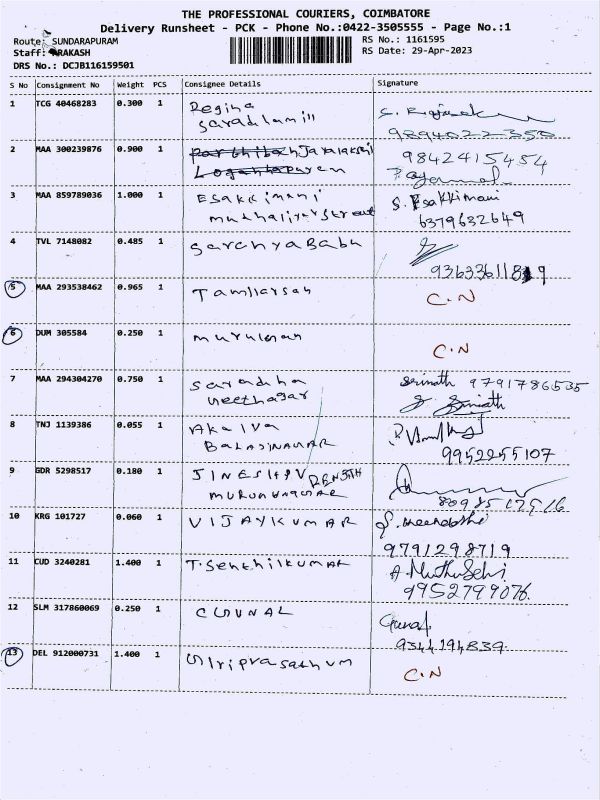 THE PROFESSIONAL COURIERS, COIMBATORE
Delivery Runsheet - PCK - Phone No.:0422-3505555 - Page No.:1
Route: SUNDARAPURAM
RS No.: 1161595
Staff: PRAKASH
RS Date: 29-Apr-2023
DRS No.: DCJB116159501
S No Consignment No Weight PCS Consignee Details Signature
1 TCG 40468283 0.300 1 Regina
9894022350
2 MAA 300239876 0.900 1 Jayalakshmi 9842415454
3 MAA 859789036 1.000 1 Esakkimani S. Esakkimani
muthaliyar street 6379632649
4 TVL 7148082 0.485 1 Saranya Babu
9363361189
5 MAA 293538462 0.965 1 Tamilarsan C.N
6 DUM 305584 0.250 1 murugan C.N
7 MAA 294304270 0.750 1 Saradha Srinath 9791786535
Srinath
8 TNJ 1139386 0.055 1 Akalya
BALAJINAGAR 9952255107
9 GDR 5298517 0.180 1 JINESH
8098517516
10 KRG 101727 0.060 1 VIJAYKUMAR S. Meenakshi
9791298719
11 CUD 3240281 1.400 1 T. Senthilkumar A. Muthu Selvi
9952799076
12 SLM 317860069 0.250 1
9344194839
13 DEL 912000731 1.400 1 C.N